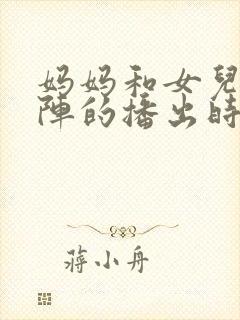 妈妈和女兒
陣的播出時
蔣小舟